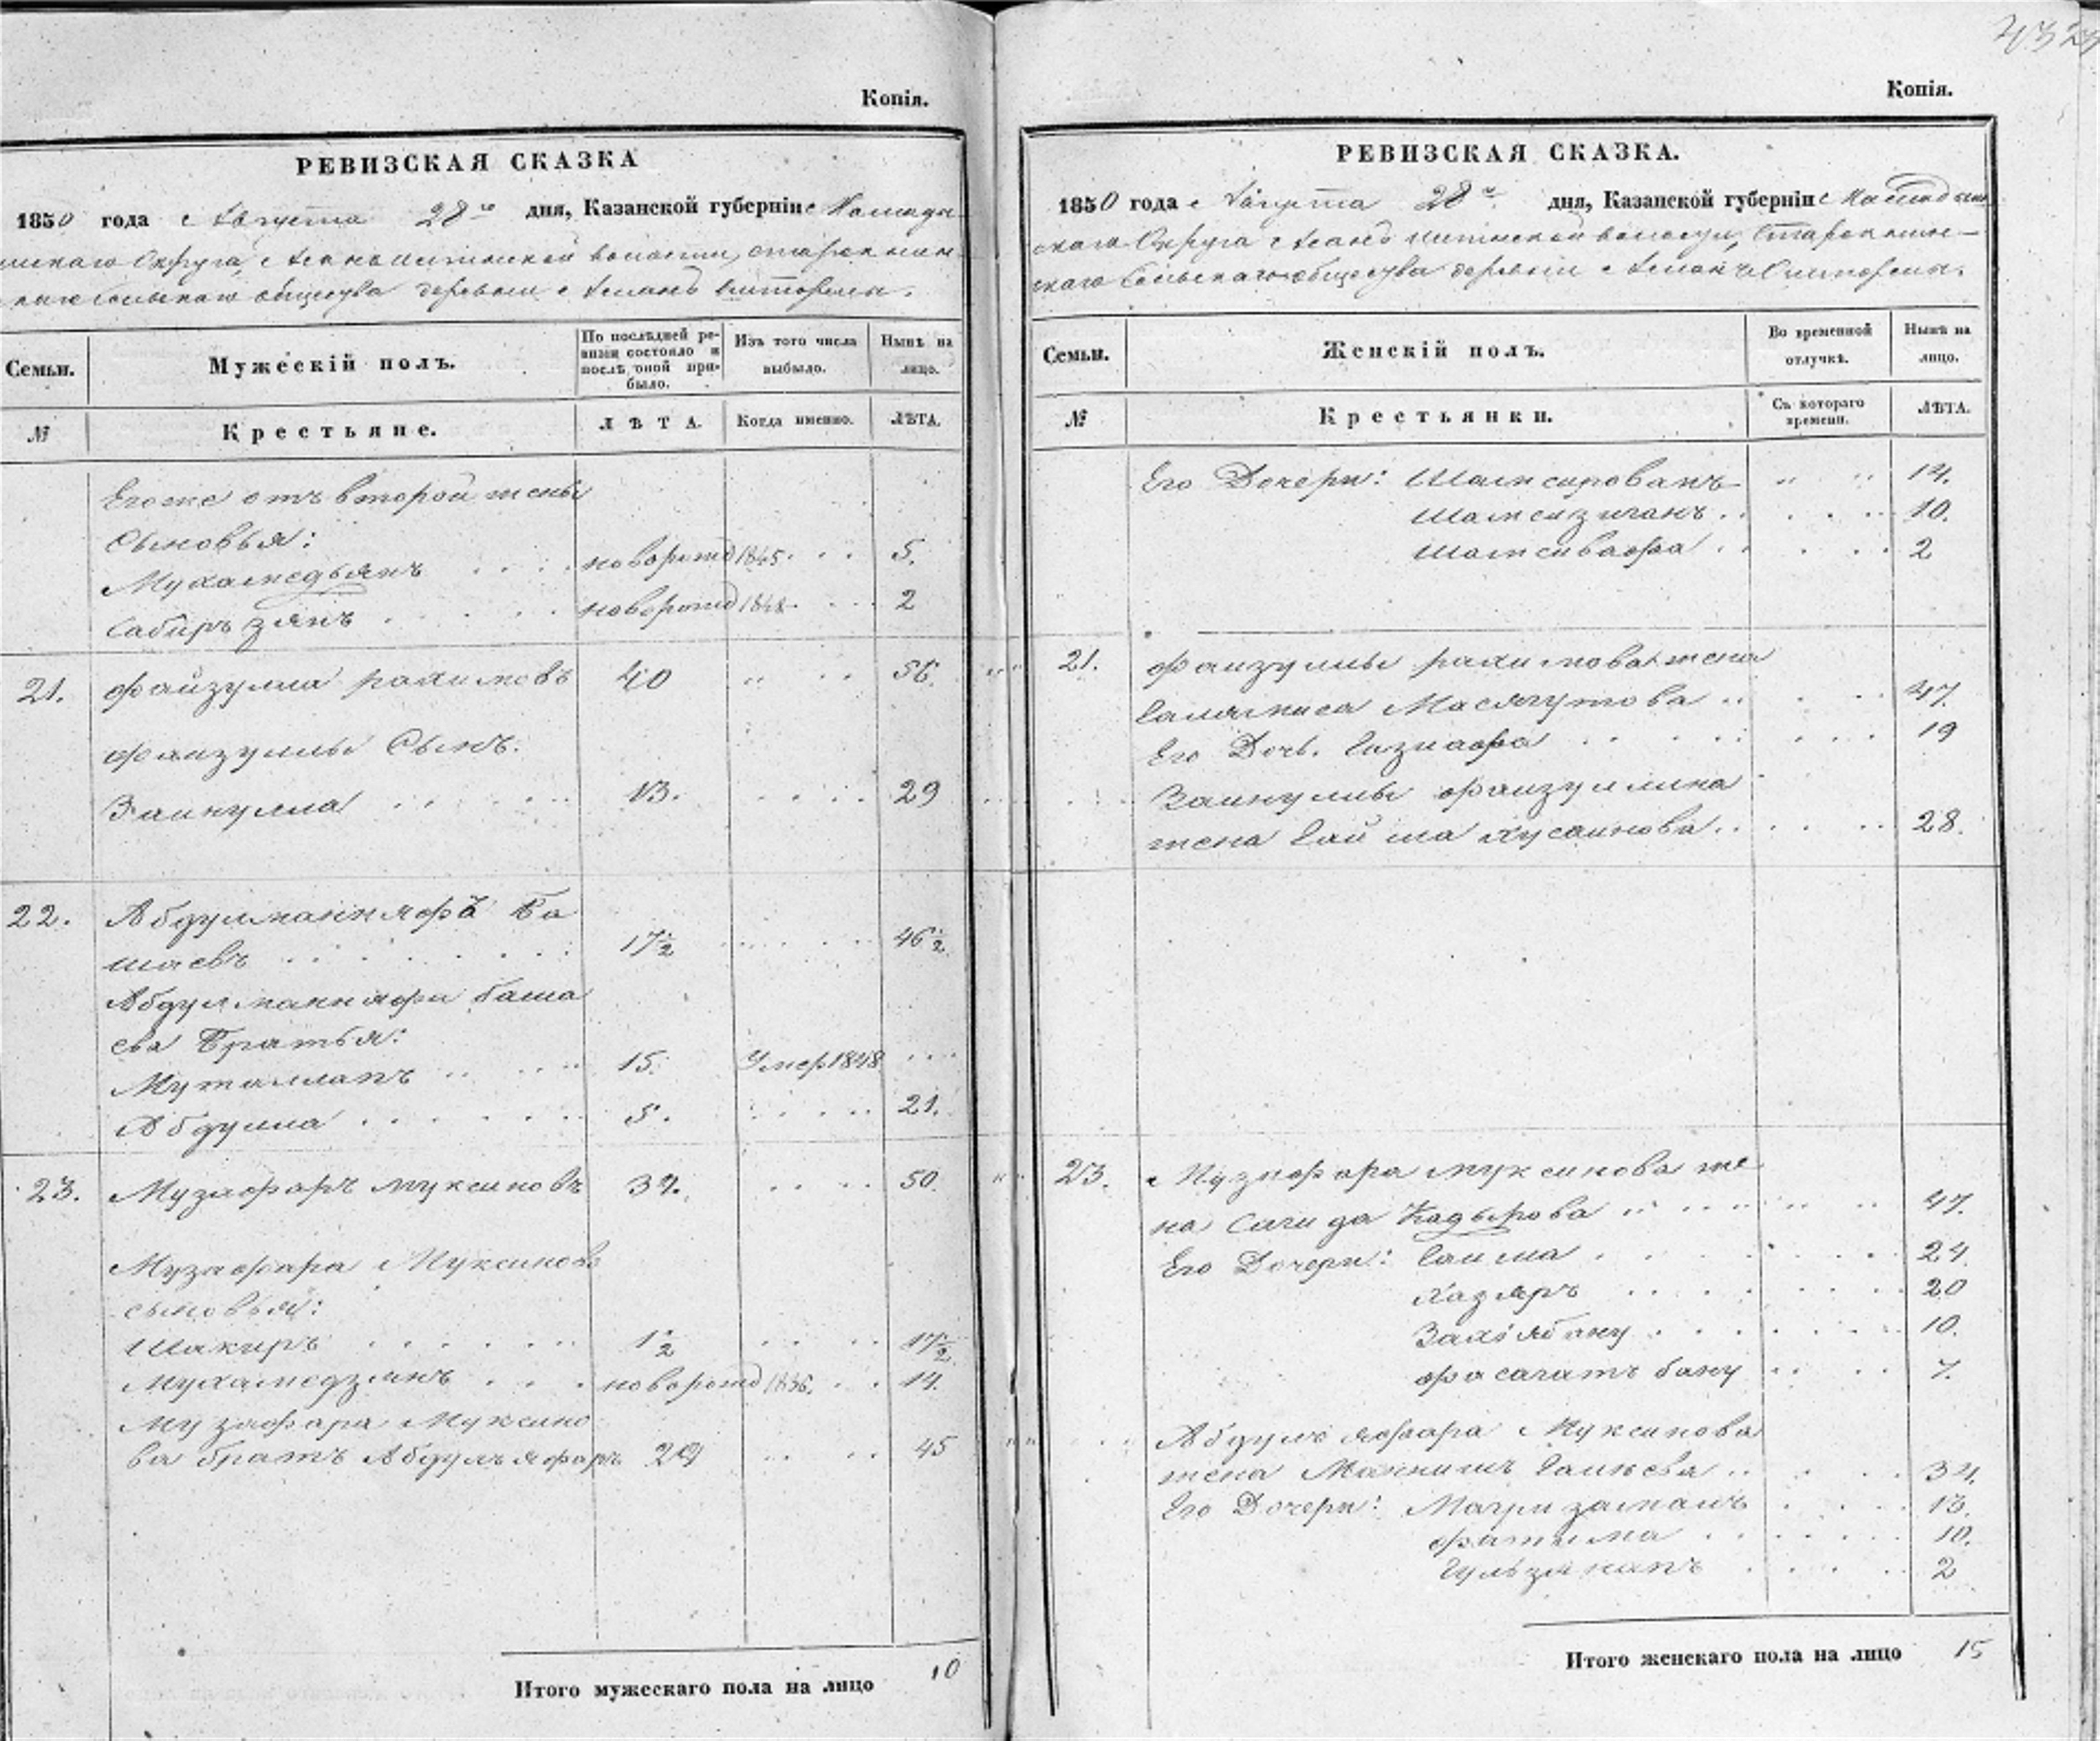 Копія.
РЕВИЗСКАЯ СКАЗКА
1850 года Августа 28го дня, Казанской губерніи Мамады
шскаго Округа,
скаго Сельскаго общества деревни
Семьи.
Мужескій полъ.
По послѣдней ре-
визіи состояло и
послѣ оной при-
было.
Изъ того числа
выбыло.
Нынѣ на
лицо.
№
Крестьяне.
ЛѢТА.
Когда именно.
ЛѢТА.
Его же отъ второй жены
Сыновья:
Мухамедьянъ новорожд 1845. 5.
Сабиръ зянъ новорожд 1848. 2
21. Файзулла Рахимовъ 40 56.
Файзуллы Сынъ:
Зайнулла 13. 29
22. Абдулманнафъ Ба
шаевъ 17½ 46½
Абдулманнафа Баша
ева Братья:
Муталлапъ 15. Умер 1848
Абдулла 5. 21.
23. Музафаръ Муксиновъ 34. 50.
Музафара Муксинова
сыновья:
Шакиръ 1½ 17½
Мухамедзянъ новорожд 1836. 14.
Музафара Муксино
ва братъ Абдулъяфаръ 29 45
Итого мужескаго пола на лицо 10
Копія.
РЕВИЗСКАЯ СКАЗКА.
1850 года Августа 28го дня, Казанской губерніи Мамадыш
скаго Округа
скаго Сельскаго общества деревни
Семьи.
Женскій полъ.
Во временной
отлучкѣ.
Нынѣ на
лицо.
№
Крестьянки.
Съ котораго
времени.
ЛѢТА.
Его Дочери: Шамсированъ 14.
Шамсизиганъ 10.
Шамсивафа 2
21. Файзуллы Рахимова жена
Масягутова 47.
Его Дочь. 19
Зайнуллы Файзуллина
жена Хусаинова 28.
23. Музафара Муксинова же
на Сагида Кадырова 47.
Его Дочери: 24.
20
10.
бану 7.
Абдулъяфара Муксинова
жена 34.
Его Дочери: 13.
Фатыма 10.
2
Итого женскаго пола на лицо 15